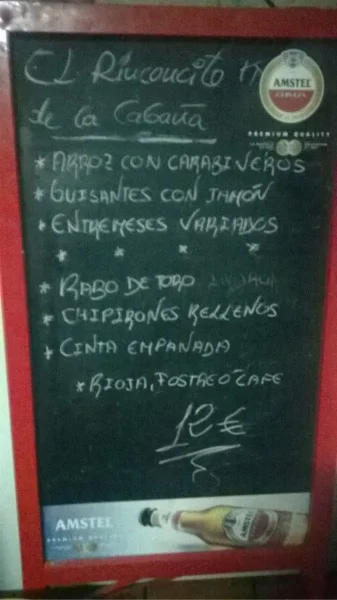 El Rinconcito
de la Cabaña
AMSTEL
CERVEZA
PREMIUM QUALITY
* ARROZ CON CARABINEROS
* GUISANTES CON JAMÓN
* ENTREMESES VARIADOS
* * * *
* RABO DE TORO
* CHIPIRONES RELLENOS
* CINTA EMPANADA
* RIOJA, POSTRE O CAFE
12 €
AMSTEL
PREMIUM QUALITY